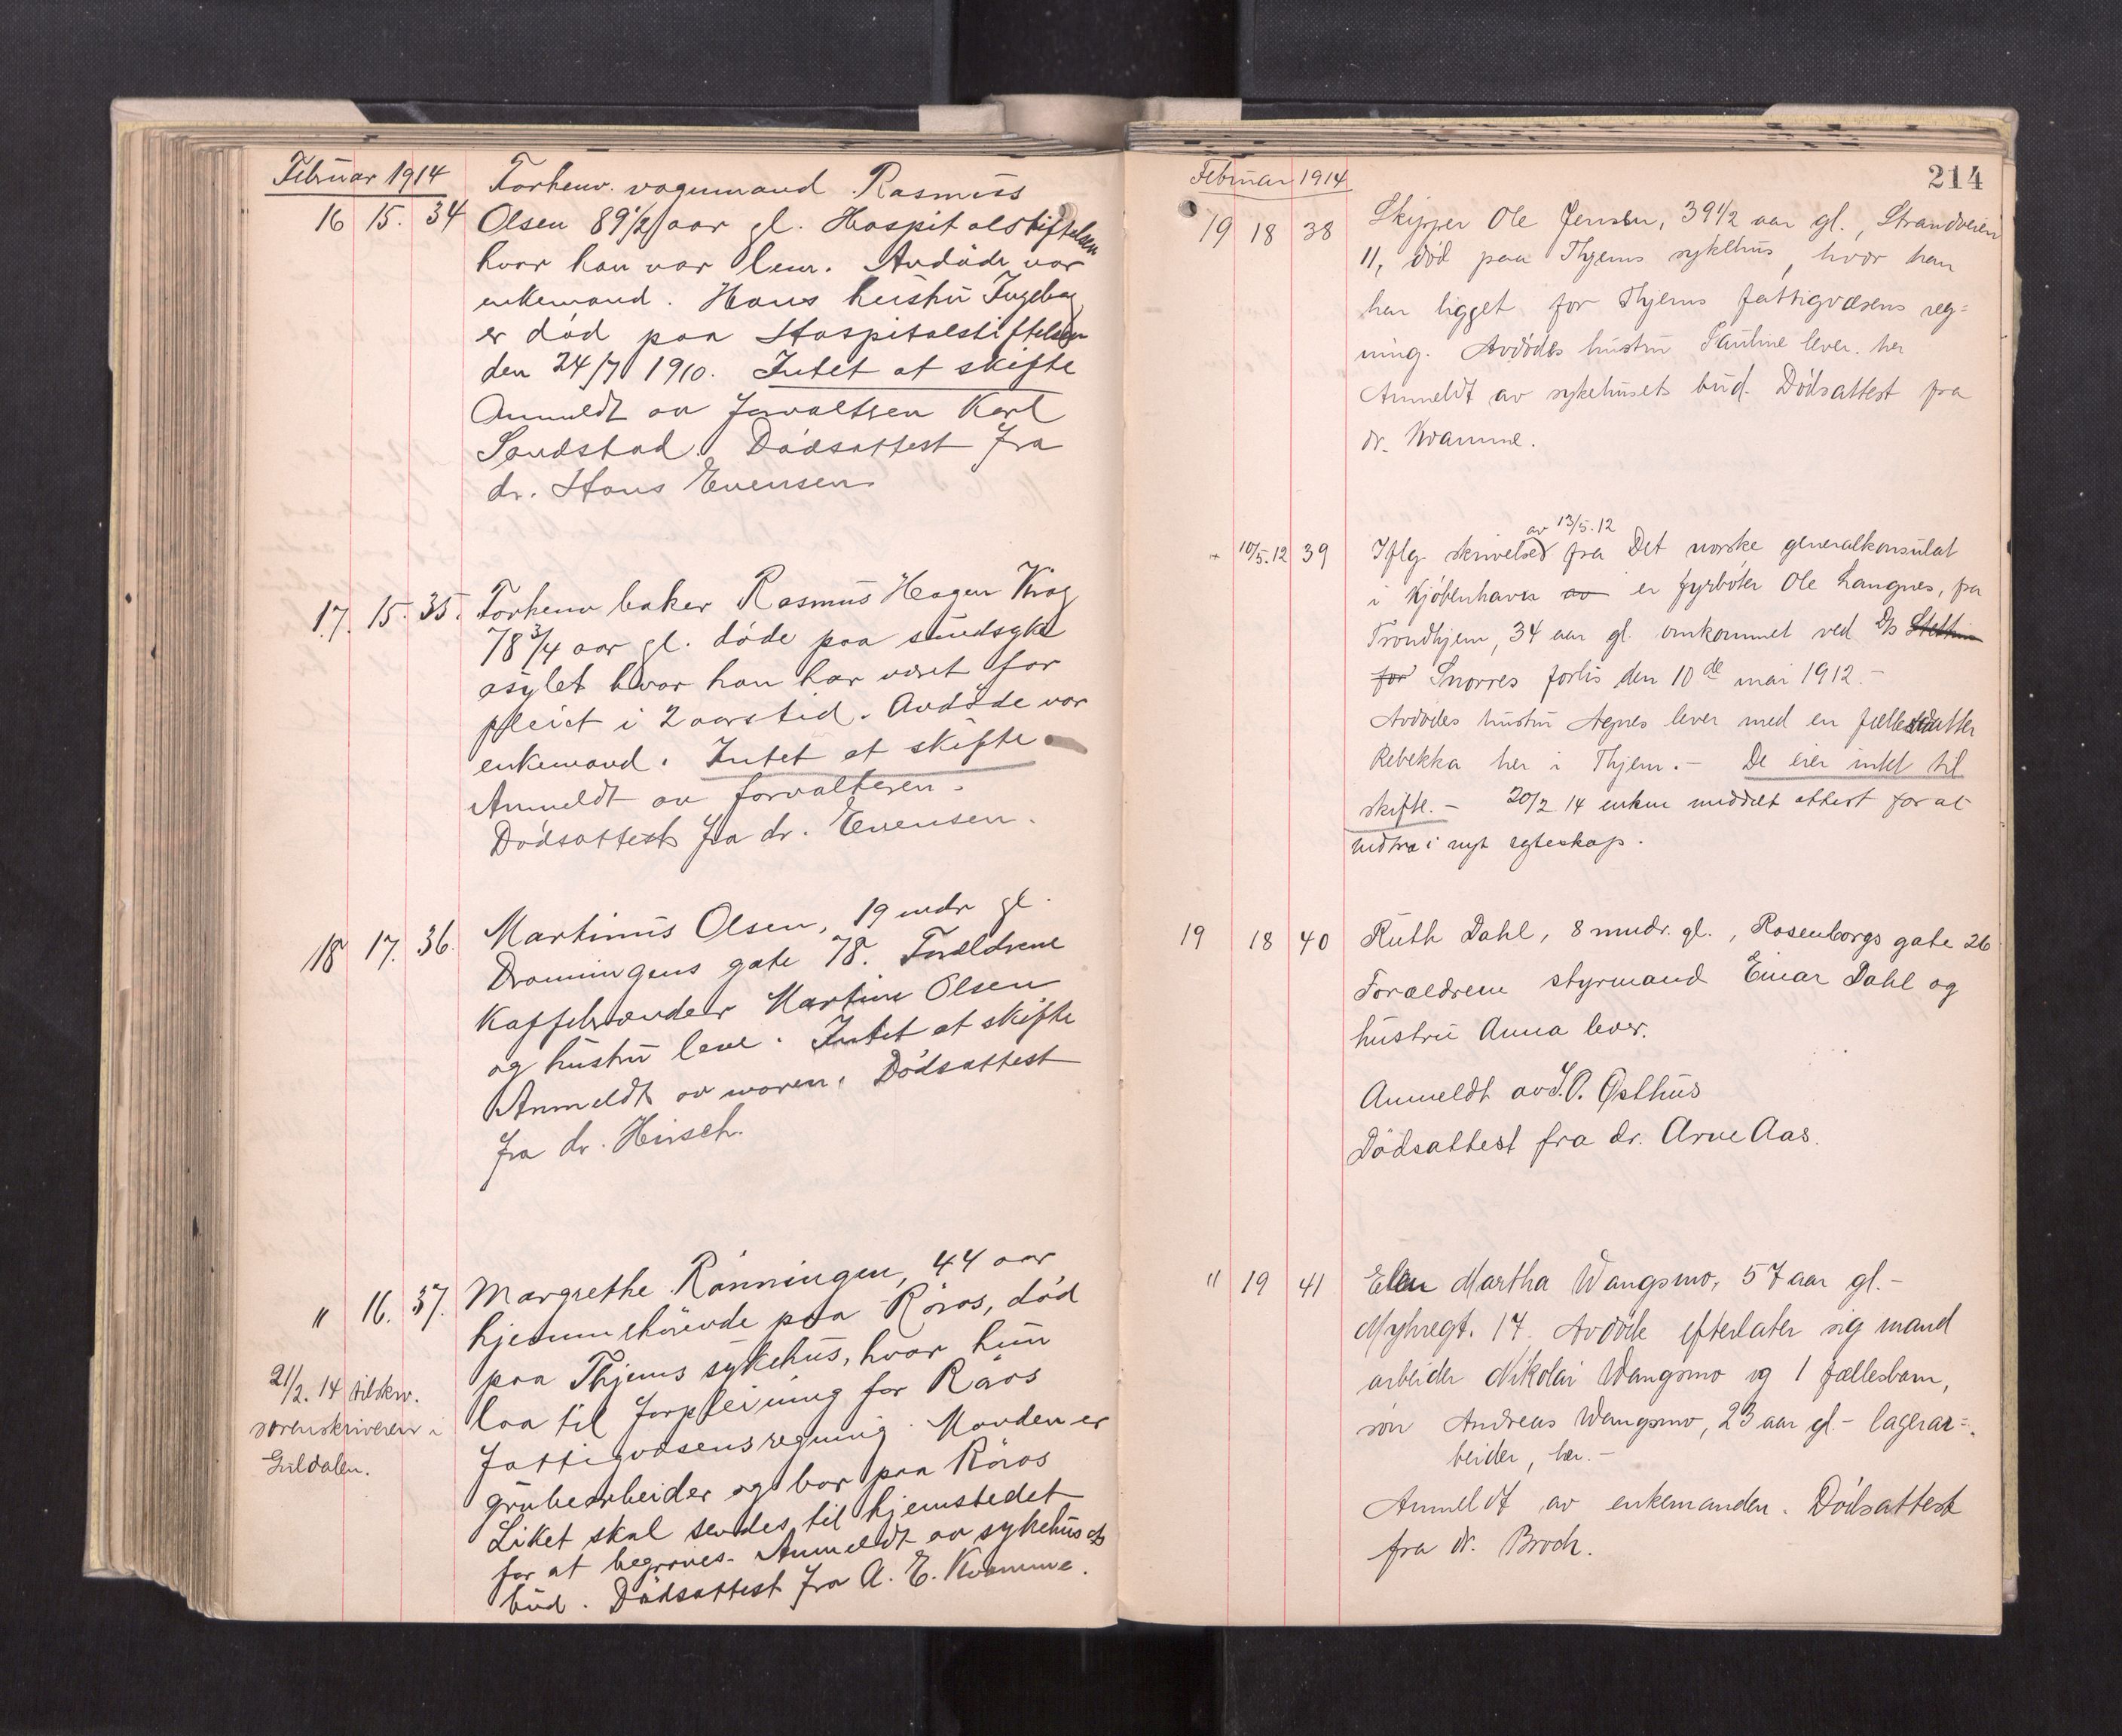 Februar 1914
Forhenv. vognmand Rasmus
16 15. 34 Olsen 89 1/2 aar gl. Hospitalstiftelsen
hvor han var lem. Avdöde var
enkemand. Hans hustru Ingeborg
er död paa Hospitalstiftelsen
den 24/7 1910. Intet at skifte
Anmeldt av forvaltren Karl
Sandstad. Dödsattest fra
dr. Hans Evensen
17. 15. 35. Forhenv baker Rasmus Hagen Krog
78 3/4 aar gl. döde paa sindsyke
asylet hvor han har været for
pleiet i 2 aars tid. Avdöde var
enkemand. Intet at skifte
Anmeldt av forvalteren.
Dödsattest fra dr. Evensen.
18 17. 36. Martinus Olsen, 19 mdr gl.
Dronningens gate 78. Forældrene
Kaffebrænder Martin Olsen
og hustru leve. Intet at skifte
Anmeldt av moren. Dödsattest
fra dr. Hirsch.
" 16. 37. Margrethe Rönningen, 44 aar
hjemmehörende paa Röros, död
paa Thjems sykehus, hvor hun
laa til forpleining for Röros
fattigvæsens regning. Manden er
grubearbeider og bor paa Röros
Liket skal sendes til hjemstedet
for at begraves. Anmeldt av sykehusets
bud. Dödsattest fra A. E. Kvamme.
21/2. 14 tilskr.
sorenskriveren i
Guldalen.
214
Februar 1914
19 18 38 Skipper Ole Jensen, 39 1/2 aar gl., Strandveien
11, död paa Thjems sykehus, hvor han
har ligget for Thjems fattigvæsens reg=
ning. Avdödes hustru Pauline lever. her
Anmeldt av sykehusets bud. Dödsattest fra
dr. Kvamme.
av 13/5.12
+ 10/5.12 39 Iflg. skrivelse fra Det norske generalkonsulat
i Kjöbenhavn av er fyrböter Ole Langnes, fra
Trondhjem, 34 aar gl. omkommet ved D/s Stettin
for Snorres forlis den 10de mai 1912.-
Avdödes hustru Agnes lever med en fællesdatter
Rebekka her i Thjem.- De eier intet til
skifte.- 20/2 14 enken meddelt attest for at
indtræ i nyt egteskap.
19 18 40 Ruth Dahl, 8 mndr. gl., Rosenborgs gate 26
Forældrene styrmand Einar Dahl og
hustru Anna lever.
Anmeldt av J.O. Østhus
Dödsattest fra dr. Arne Aas.
" 19 41 Elen Martha Wangsmo, 57 aar gl.-
Myhregt. 17. Avdöde efterlater sig mand
arbeider Nikolai Wangsmo og 1 fællesbarn,
sön Andreas Wangsmo, 23 aar gl.- lagerar=
beider, her.-
Anmeldt av enkemanden. Dödsattest
fra dr. Broch.